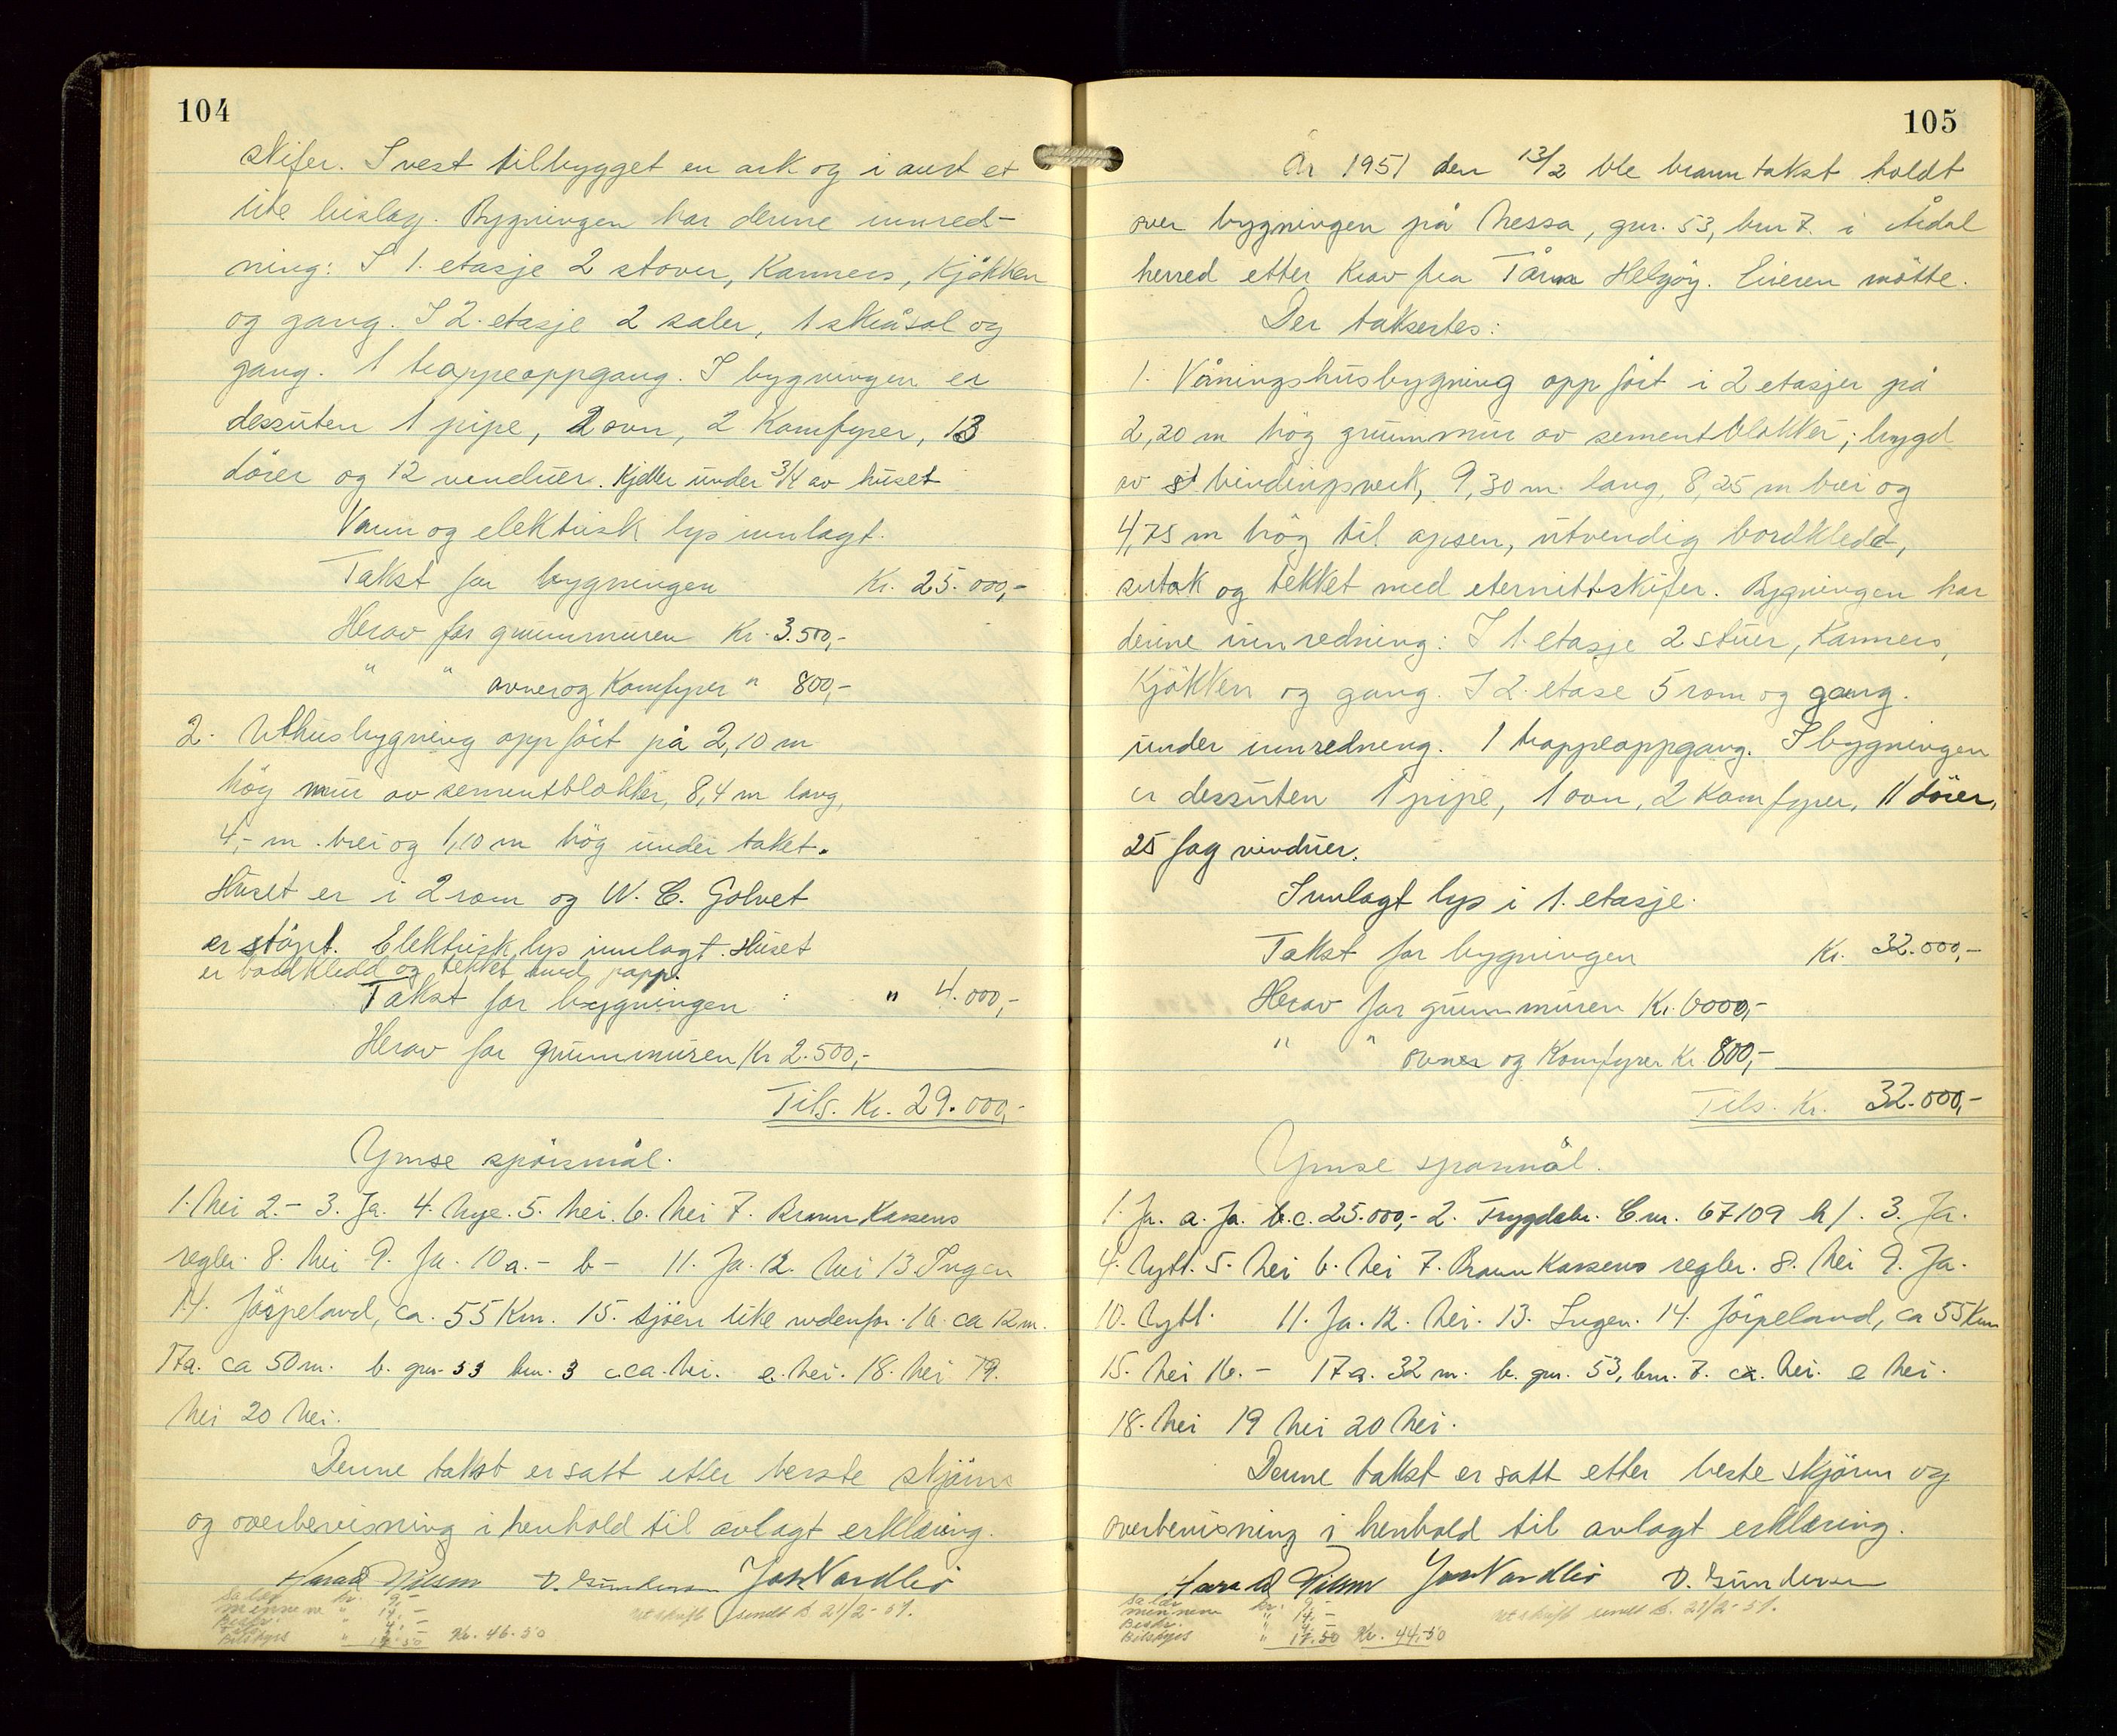 104
skifer. I vest tilbygget en ark og i aust et
lite bislag. Bygningen har denne innred-
ning: I 1. etasje 2 stover, Kammers, Kjökken
og gang. I 2. etasje 2 saler, 1 skråsal og
gang. 1 trappeoppgang. I bygningen er
dessuten 1 pipe, 2 ovn, 2 Komfyrer, 13
dörer og 12 venduer. Kjeller under 3/4 av huset
Vann og elektrisk lys innlagt.
Takst for bygningen Kr. 25.000,-
Herav for grunnmuren Kr. 3.500,-
" " ovner og Komfyrer " 800,-
2. Uthusbygning oppfört på 2,10 m
hög mur av sementblokker, 8,4 m lang,
4,- m. brei og 1,10 m hög under taket.
Huset er i 2 rom og W.C. Golvet
er stöpt. Elektrisk lys innlagt. Huset
er bordkledd og tekket med papp.
Takst for bygningen : " 4.000,-
Herav for grunnmuren Kr 2.500,-
Tils. Kr. 29.000,-
Ymse spörsmål.
1. Nei 2.- 3. Ja. 4. Mye. 5. Nei. 6. Nei 7. Brannkassens
regler. 8. Nei 9. Ja. 10 a.- b- 11. Ja. 12. Nei 13 Ingen
14. Jörpeland, ca. 55 Km. 15. Sjöen like nedenfor. 16. ca 12 m.
17a. ca 50 m. b. gnr. 53 bnr. 3 c.ca. Nei. e. Nei. 18. Nei 19.
Nei 20 Nei.
Denne takst er satt etter beste skjönn
og overbevisning i henhold til avlagt erklæring.
Harald Nilsen O. Gundersen Jon Nordbö
Salær kr. 9,-
mennene " 14,-
Beskr. " 4,-
Bilskyss " 17.50 Kr. 46.50
utskrift sendt d. 21/2-51.
105
År 1951 den 13/2 ble branntakst holdt
over bygningen på Nessa, gnr. 53, bnr 7. i Årdal
herred etter Krav fra Tårn Helgöy. Eieren mötte.
Der taksertes:
1. Våningshusbygning oppfört i 2 etasjer på
2,20 m hög grunnmur av sementblokker; bygd
av bindingsverk, 9,30 m. lang, 8,25 m brei og
4,75 m hög til opsen, utvendig bordkledd,
sutak og tekket med eternittskifer. Bygningen har
denne innredning: I 1. etasje 2 stuer, Kammers,
Kjökken og gang. I 2. etase 5 rom og gang.
under innredneng. 1 trappeoppgang. I bygningen
er dessuten 1 pipe, 1 ovn, 2 Komfyrer, 11 dörer,
25 fag vinduer.
Innlagt lys i 1. etasje.
Takst for bygningen Kr. 32.000,-
Herav for grunnmuren Kr. 6000,-
" " ovner og Komfyrer Kr. 800,-
Tils. Kr. 32.000,-
Ymse spörsmål.
1. Ja. a. Ja. b.c. 25.000,- 2. Trygdebr. C.nr. 67109 h/. 3. Ja.
4. Nytt. 5. Nei 6. Nei 7. Brannkassens regler. 8. Nei 9. Ja.
10. Nytt. 11. Ja. 12. Nei. 13. Ingen. 14. Jörpeland, ca 55 Km
15. Nei 16.- 17a. 32 m. b. gnr. 53, bnr. 7. ca. Nei. e Nei.
18. Nei 19 Nei 20 Nei.
Denne takst er satt etter beste skjönn og
overbevisning i henhold til avlagt erklæring.
Harald Nilsen Jon Nordbö O. Gundersen
Salær kr. 9,-
mennene " 14,-
Beskr. " 4,-
Bilskyss " 17.50 Kr. 44.50
utskrift sendt d. 21/2-51.